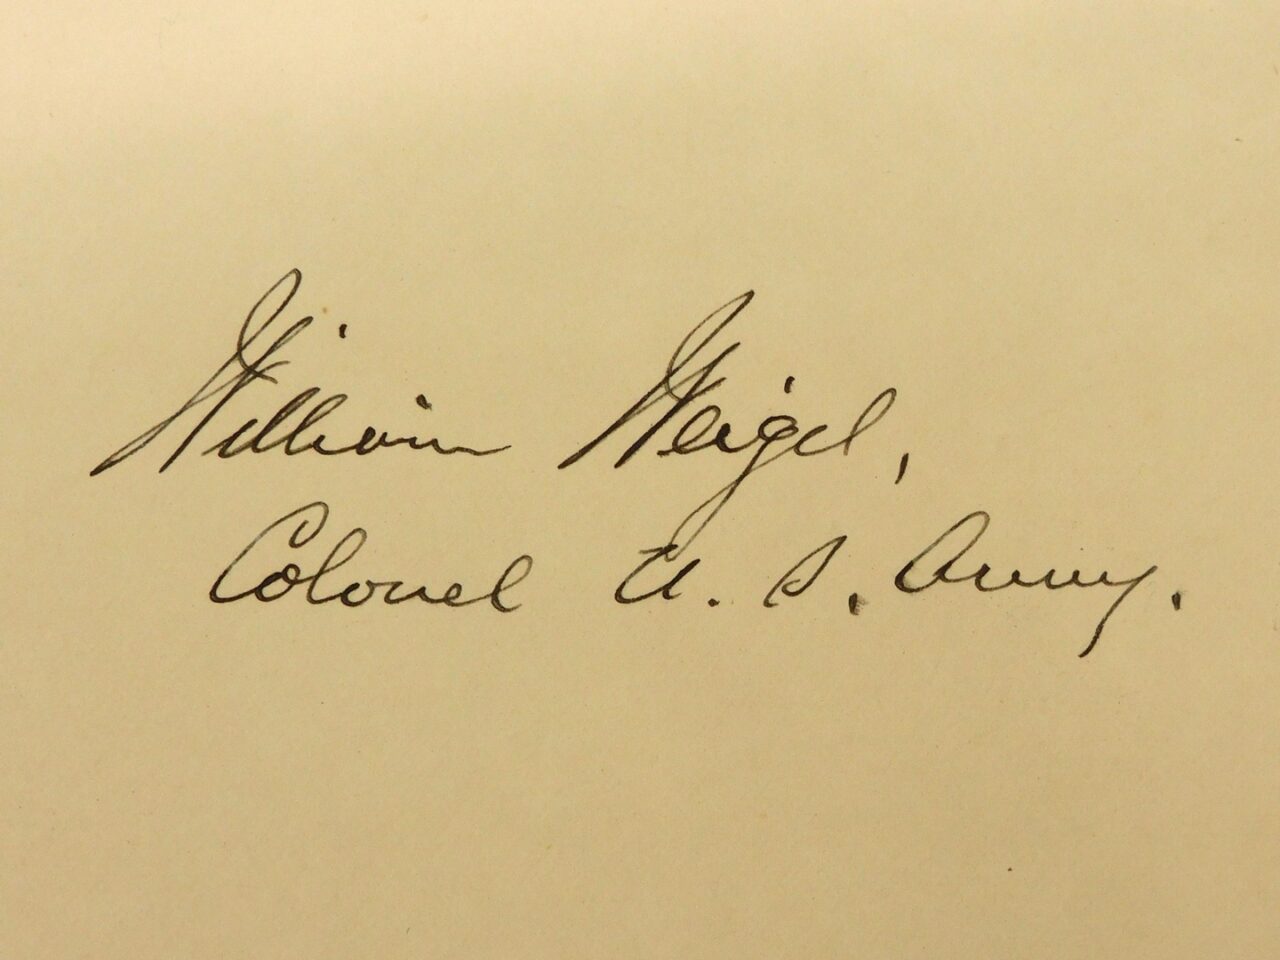 William Weigel,
Colonel U. S. Army.